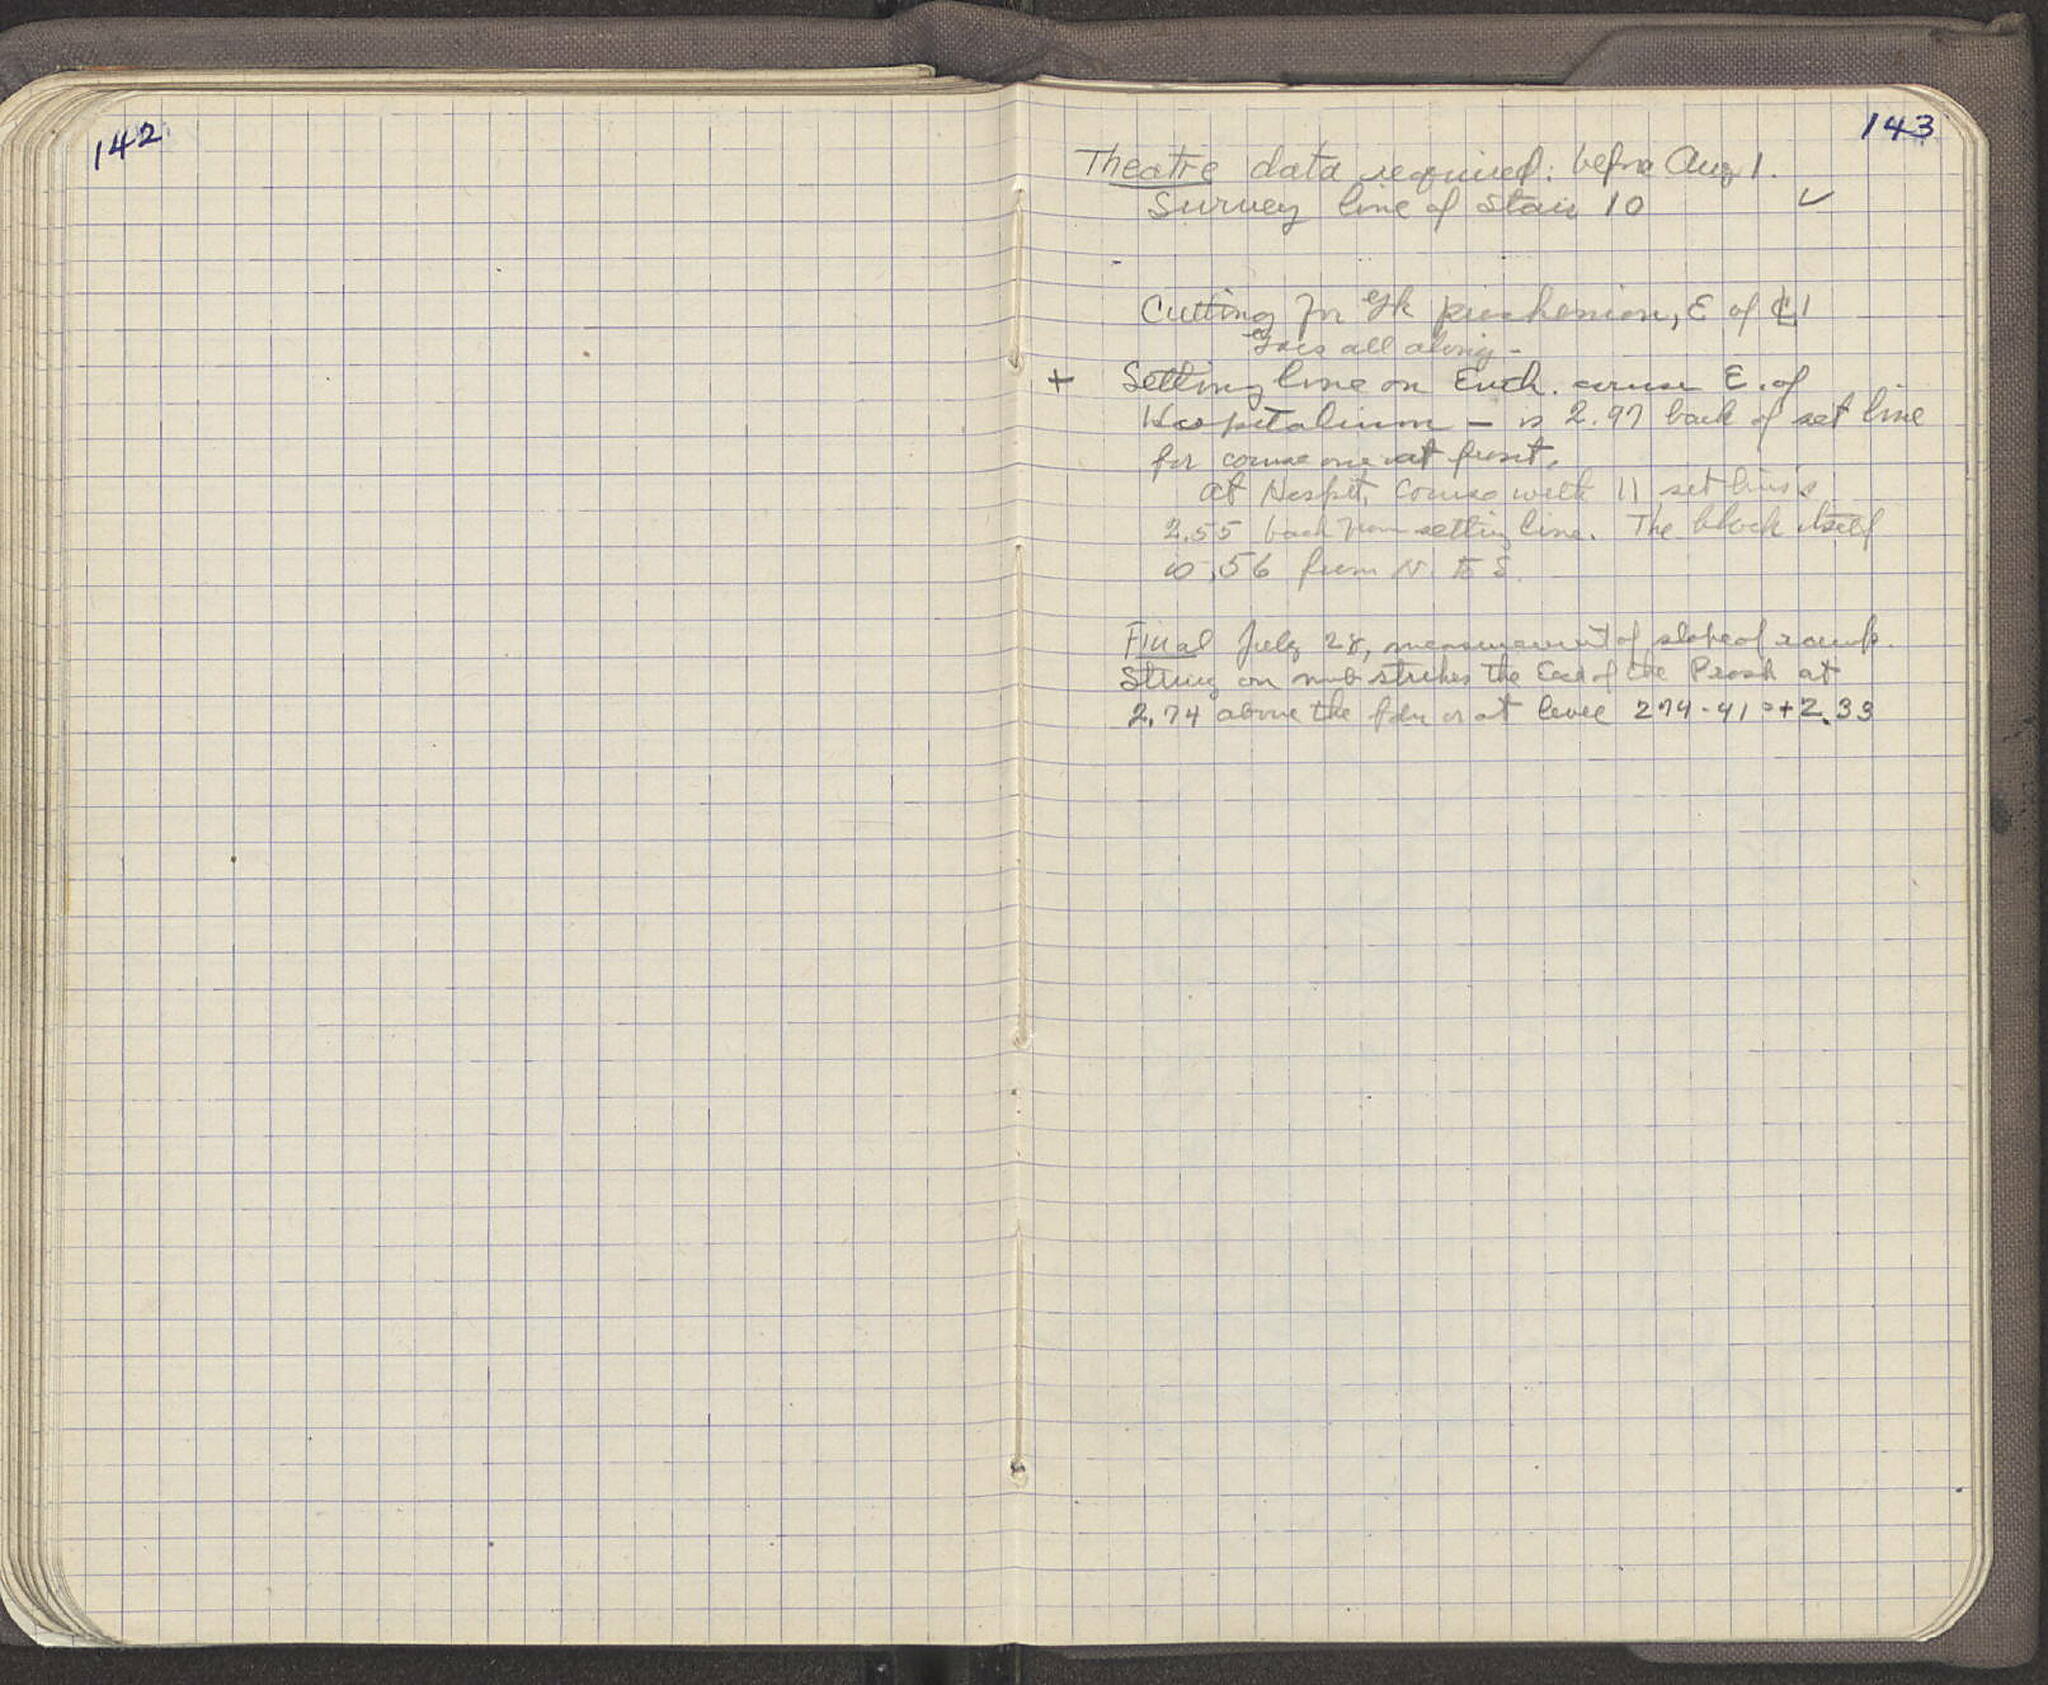 142
143
Theatre data required: before Aug 1.
Survey line of Stair 10 ✓
Cutting for Gk proskenion, E of ₵1
Goes all along -
+ Setting line on Euth. course E. of
Hospitalium - is 2.97 back of set line
for course one at front.
at Hospit. course with 11 set line is
2.55 back from setting line. The block itself
is .56 from N. to S.
Final July 28, measurement of slope of ramp.
String on nub strikes the End of the Prosk at
2.74 above the fdn or at level 274-41 = +2.33